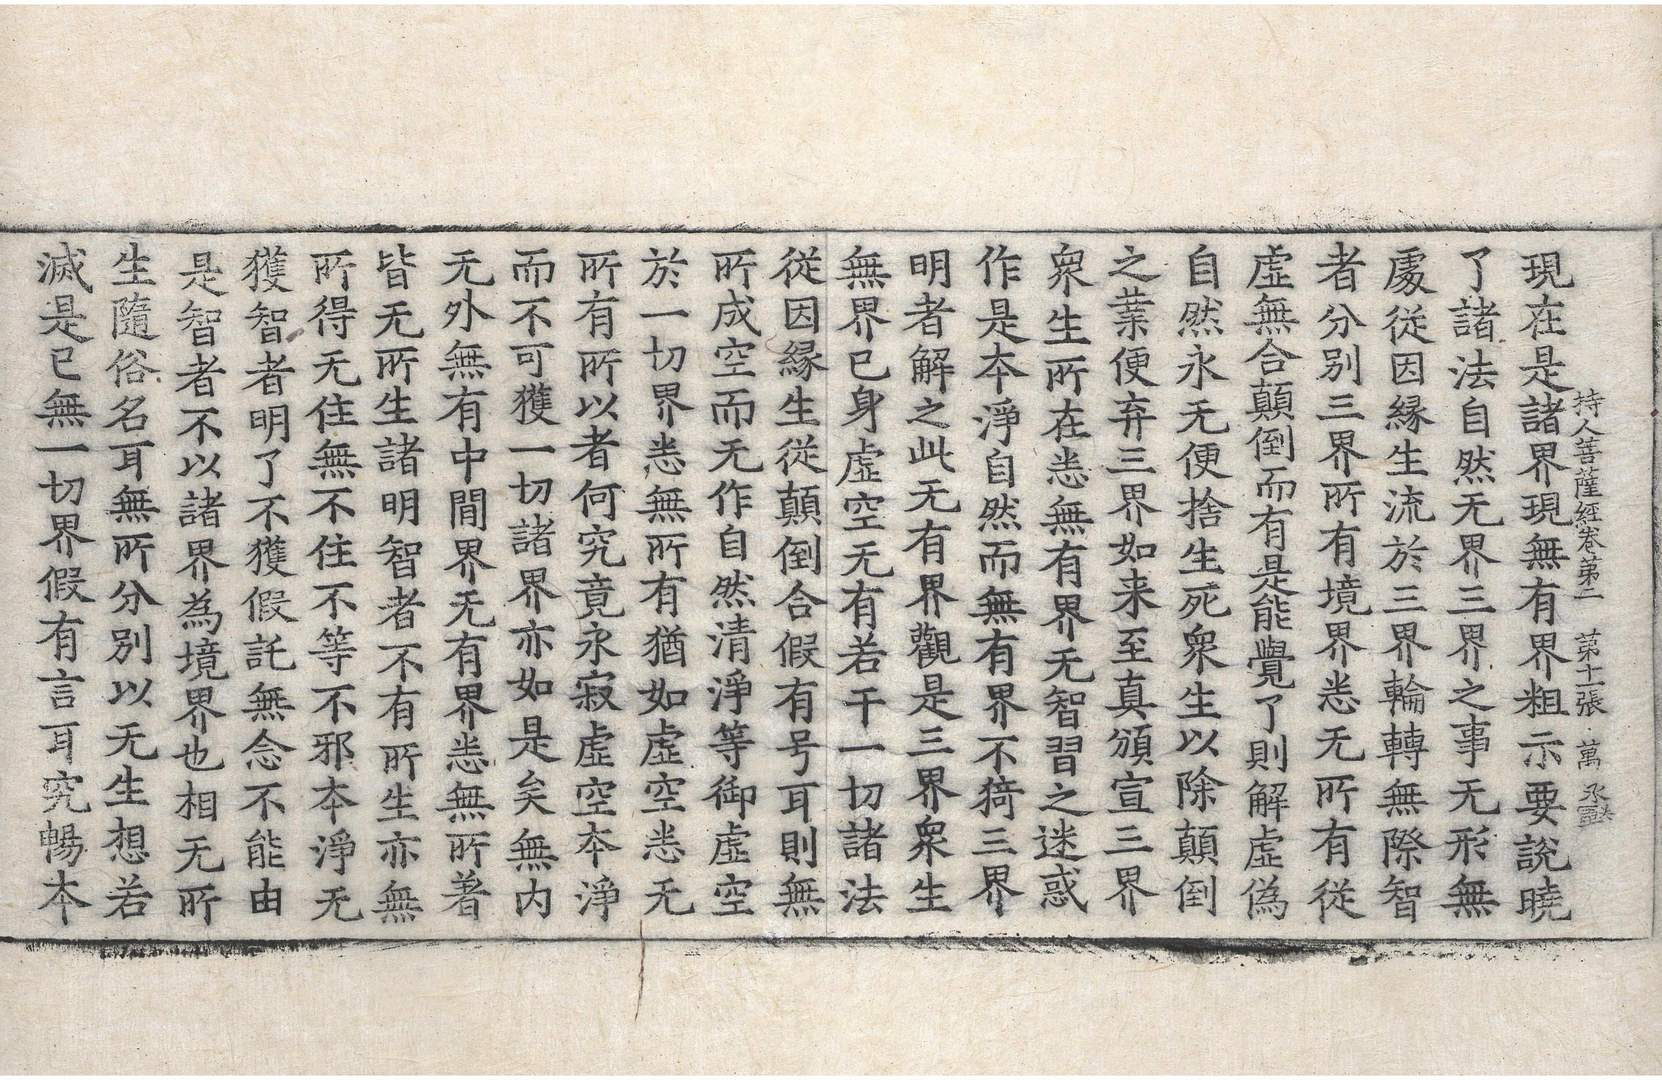 持人菩薩經卷第二 第十一張 萬
現在是諸界現無有界粗示要說曉
了諸法自然无界三界之事无形無
處從因緣生流於三界輪轉無際智
者分別三界所有境界悉无所有從
虛無合顛倒而有是能覺了則解虛偽
自然永无便捨生死衆生以除顛倒
之業便弃三界如来至真頒宣三界
衆生所在悉無有界无智習之迷惑
作是夲淨自然而無有界不猗三界
明者解之此无有界觀是三界衆生
無界已身虛空无有若干一切諸法
從因緣生從顛倒合假有号耳則無
所成空而无作自然清淨等御虛空
於一切界悉無所有猶如虛空悉无
所有所以者何究竟永寂虛空夲淨
而不可獲一切諸界亦如是矣無内
无外無有中間界无有界悉無所著
皆无所生諸明智者不有所生亦無
所得无住無不住不等不邪夲淨无
獲智者明了不獲假託無念不能由
是智者不以諸界為境界也相无所
生隨俗名耳無所分別以无生想若
滅是已無一切界假有言耳究暢夲